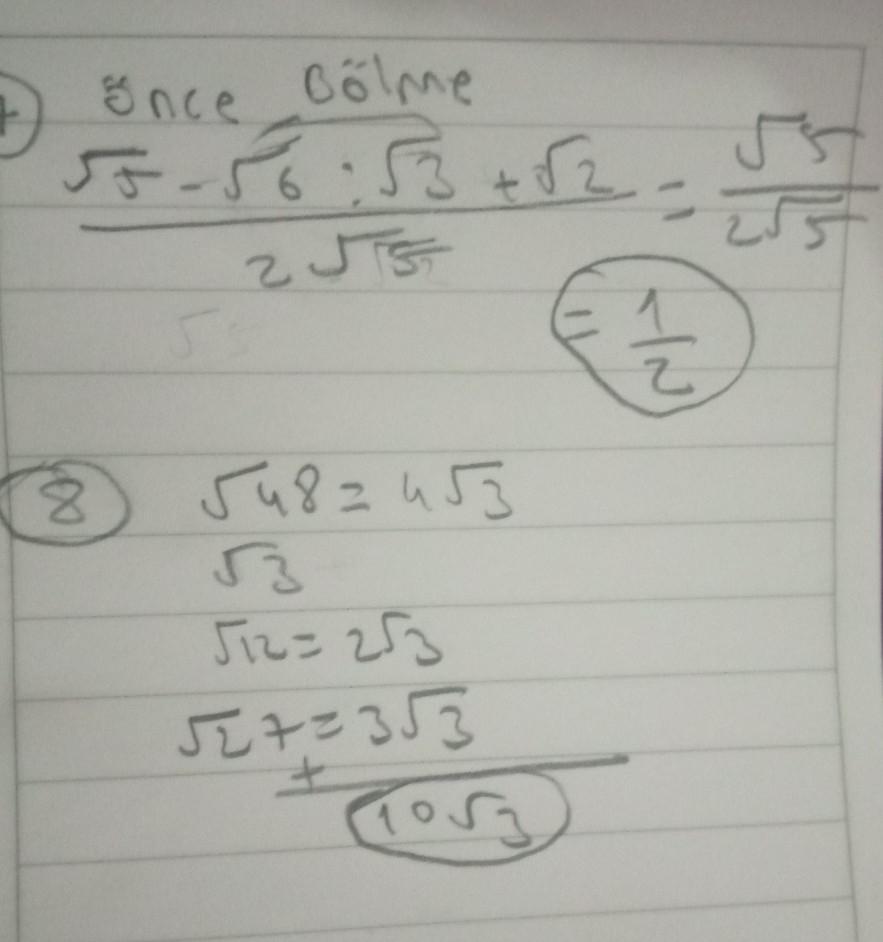 Önce Bölme
√5 - √6 : √3 + √2 = √5
2√5 2√5
= 1/2
8 √48 = 4√3
√3
√12 = 2√3
√27 = 3√3
+
10√3